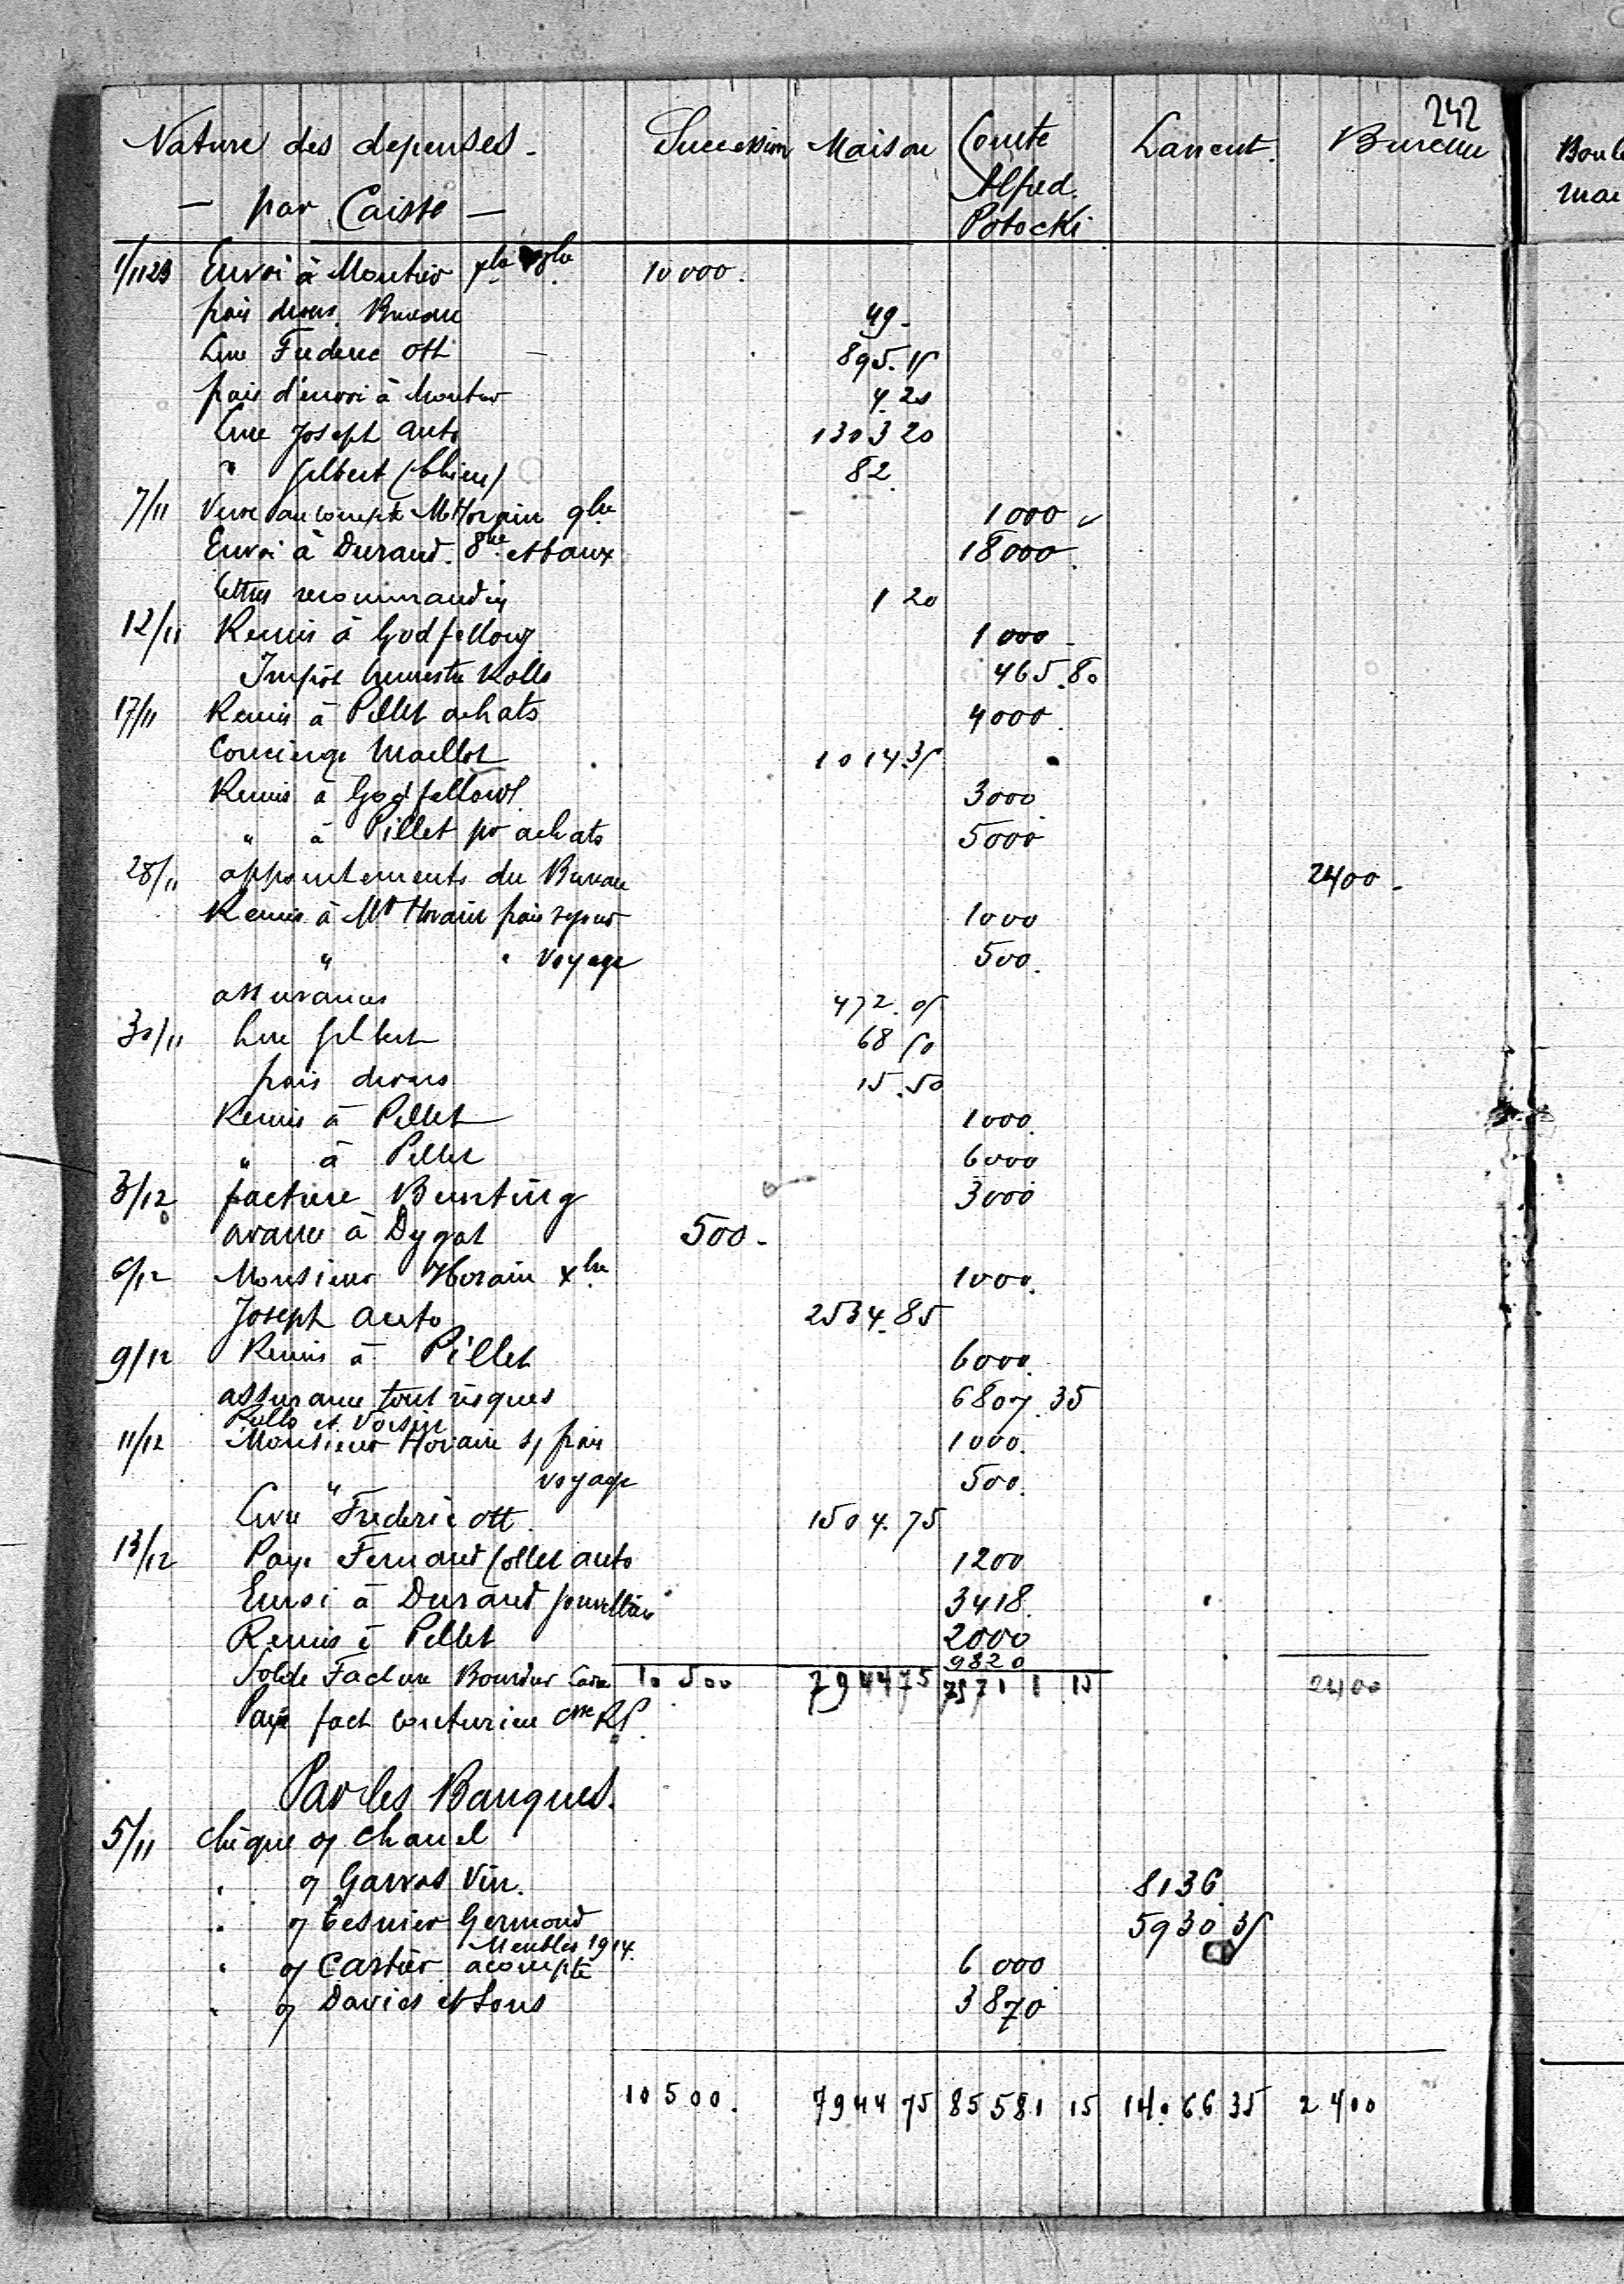 242
Nature des depenses. Succession Maison Comte Lancut. Bureau
— par Caisse — Alfred
Potocki
1/11 23 Envoi à Moutier 10 000.
frais divers Bureau 49.
Livre Frederic Ott 895.15
frais d'envoi à Moutier 4.20
Livre Joseph auto 1303 20
" Gilbert (chien) 82
7/11 Verse au compte Mr Horain 9bre 1000
Envoi à Durand. 8bre et taux 18000.
lettres recommandées 1 20
12/11 Remis à Godfellows 1000
Impôt trimestre Rolls 465.80
17/11 Remis à Pillet achats 4000.
Concierge Maillot 1014.35
Remis à Godfellows 3000
" à Pillet pr achats 5000
28/11 appointements du Bureau 2400.
Remis à Mr Horain frais séjour 1000
" " voyage 500.
assurances 472.05
30/11 Livre Gilbert 68 50
frais divers 15.50
Remis à Pillet 1000.
" à Pillet 6000
3/12 facture Bunting 3000
avance à Dygat 500.
6/12 Monsieur Horain xbre 1000.
Joseph auto 2534.85
9/12 Remis à Pillet 6000
assurance tout risques 6807.35
Rolls et Voisin
11/12 Monsieur Horain s/ frais 1000.
" voyage 500.
Livre Frederic Ott 1504.75
13/12 Paye Fernand Collet auto 1200
Envoi à Durand 3418.
Remis à Pillet 2000
9820
Solde Facture 10 500 7944 75 75711 15 2400
Payé fact couturier Ctsse RP.
Par les Banques.
5/11 chèque o/ Chanel
. o/ Garros Vin. 8136.
. o/ Tesnier Germond 5930 35
Meubles 1914.
. o/ Cartier acompte 6 000
. o/ Davies et Sons 3870
10 500. 7944 75 85 581 15 14066 35 2400
Boul
mai